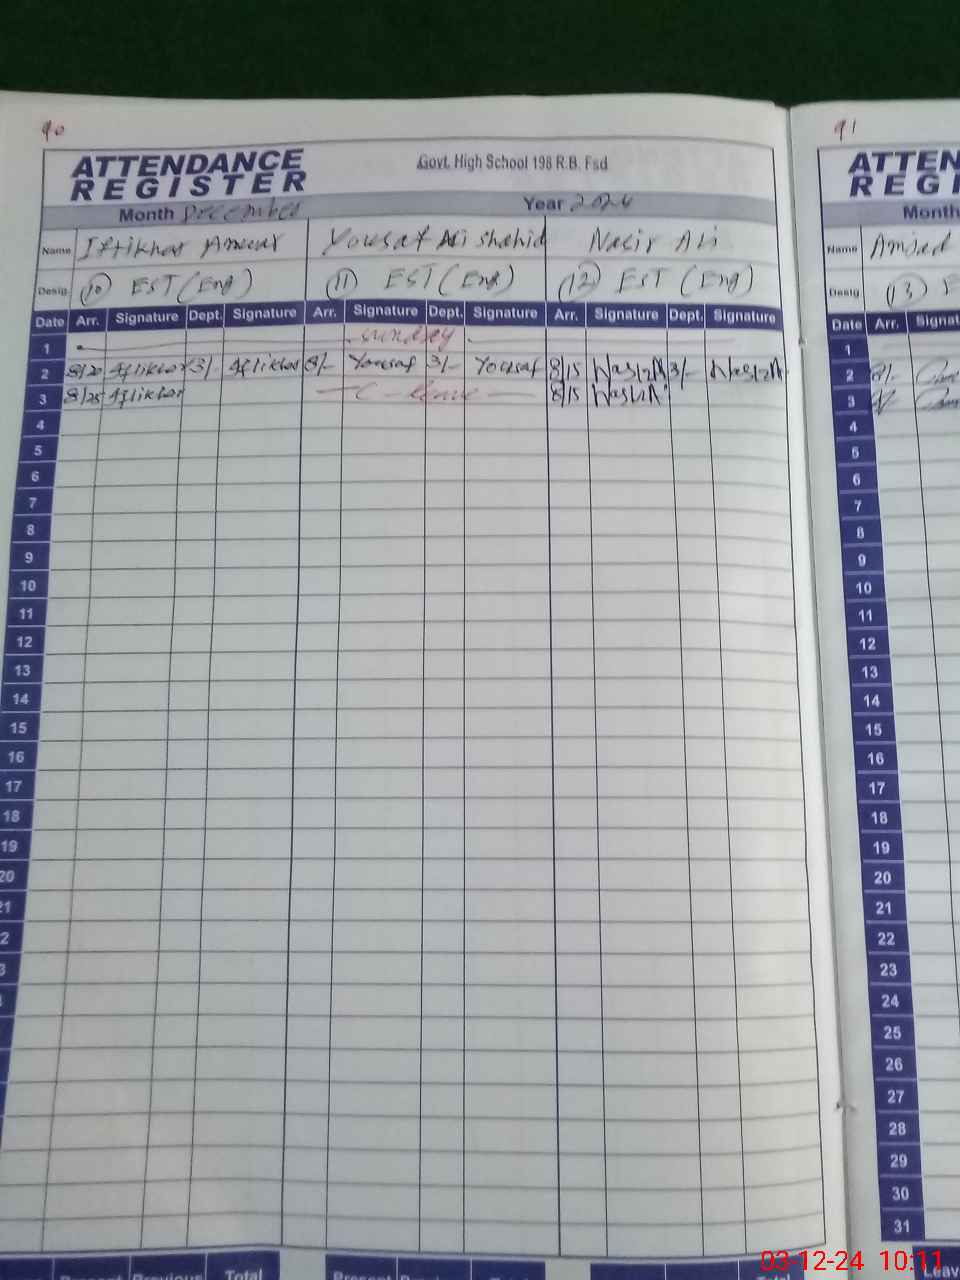 90
ATTENDANCE
REGISTER
Govt. High School 198 R.B. Fsd
Month December Year 2024
Name Iftikhar Anwar Yousaf Ali Shahid Nasir Ali
Desig. (10) EST (Eng) (11) EST (Eng) (12) EST (Eng)
Date Arr. Signature Dept. Signature Arr. Signature Dept. Signature Arr. Signature Dept. Signature
1 Sunday
2 8/20 Iftikhar 3/- Iftikhar 8/- Yousaf 3/- Yousaf 8/15 3/-
3 8/25 Iftikhar C-leave 8/15
4
5
6
7
8
9
10
11
12
13
14
15
16
17
18
19
20
21
2
3
Present Previous Total Present
91
ATTEN
REGI
Month
Name Amjad
Desig. (13) E
Date Arr. Signat
1
2 8/-
3
4
5
6
7
8
9
10
11
12
13
14
15
16
17
18
19
20
21
22
23
24
25
26
27
28
29
30
31
Leav
03-12-24 10:11